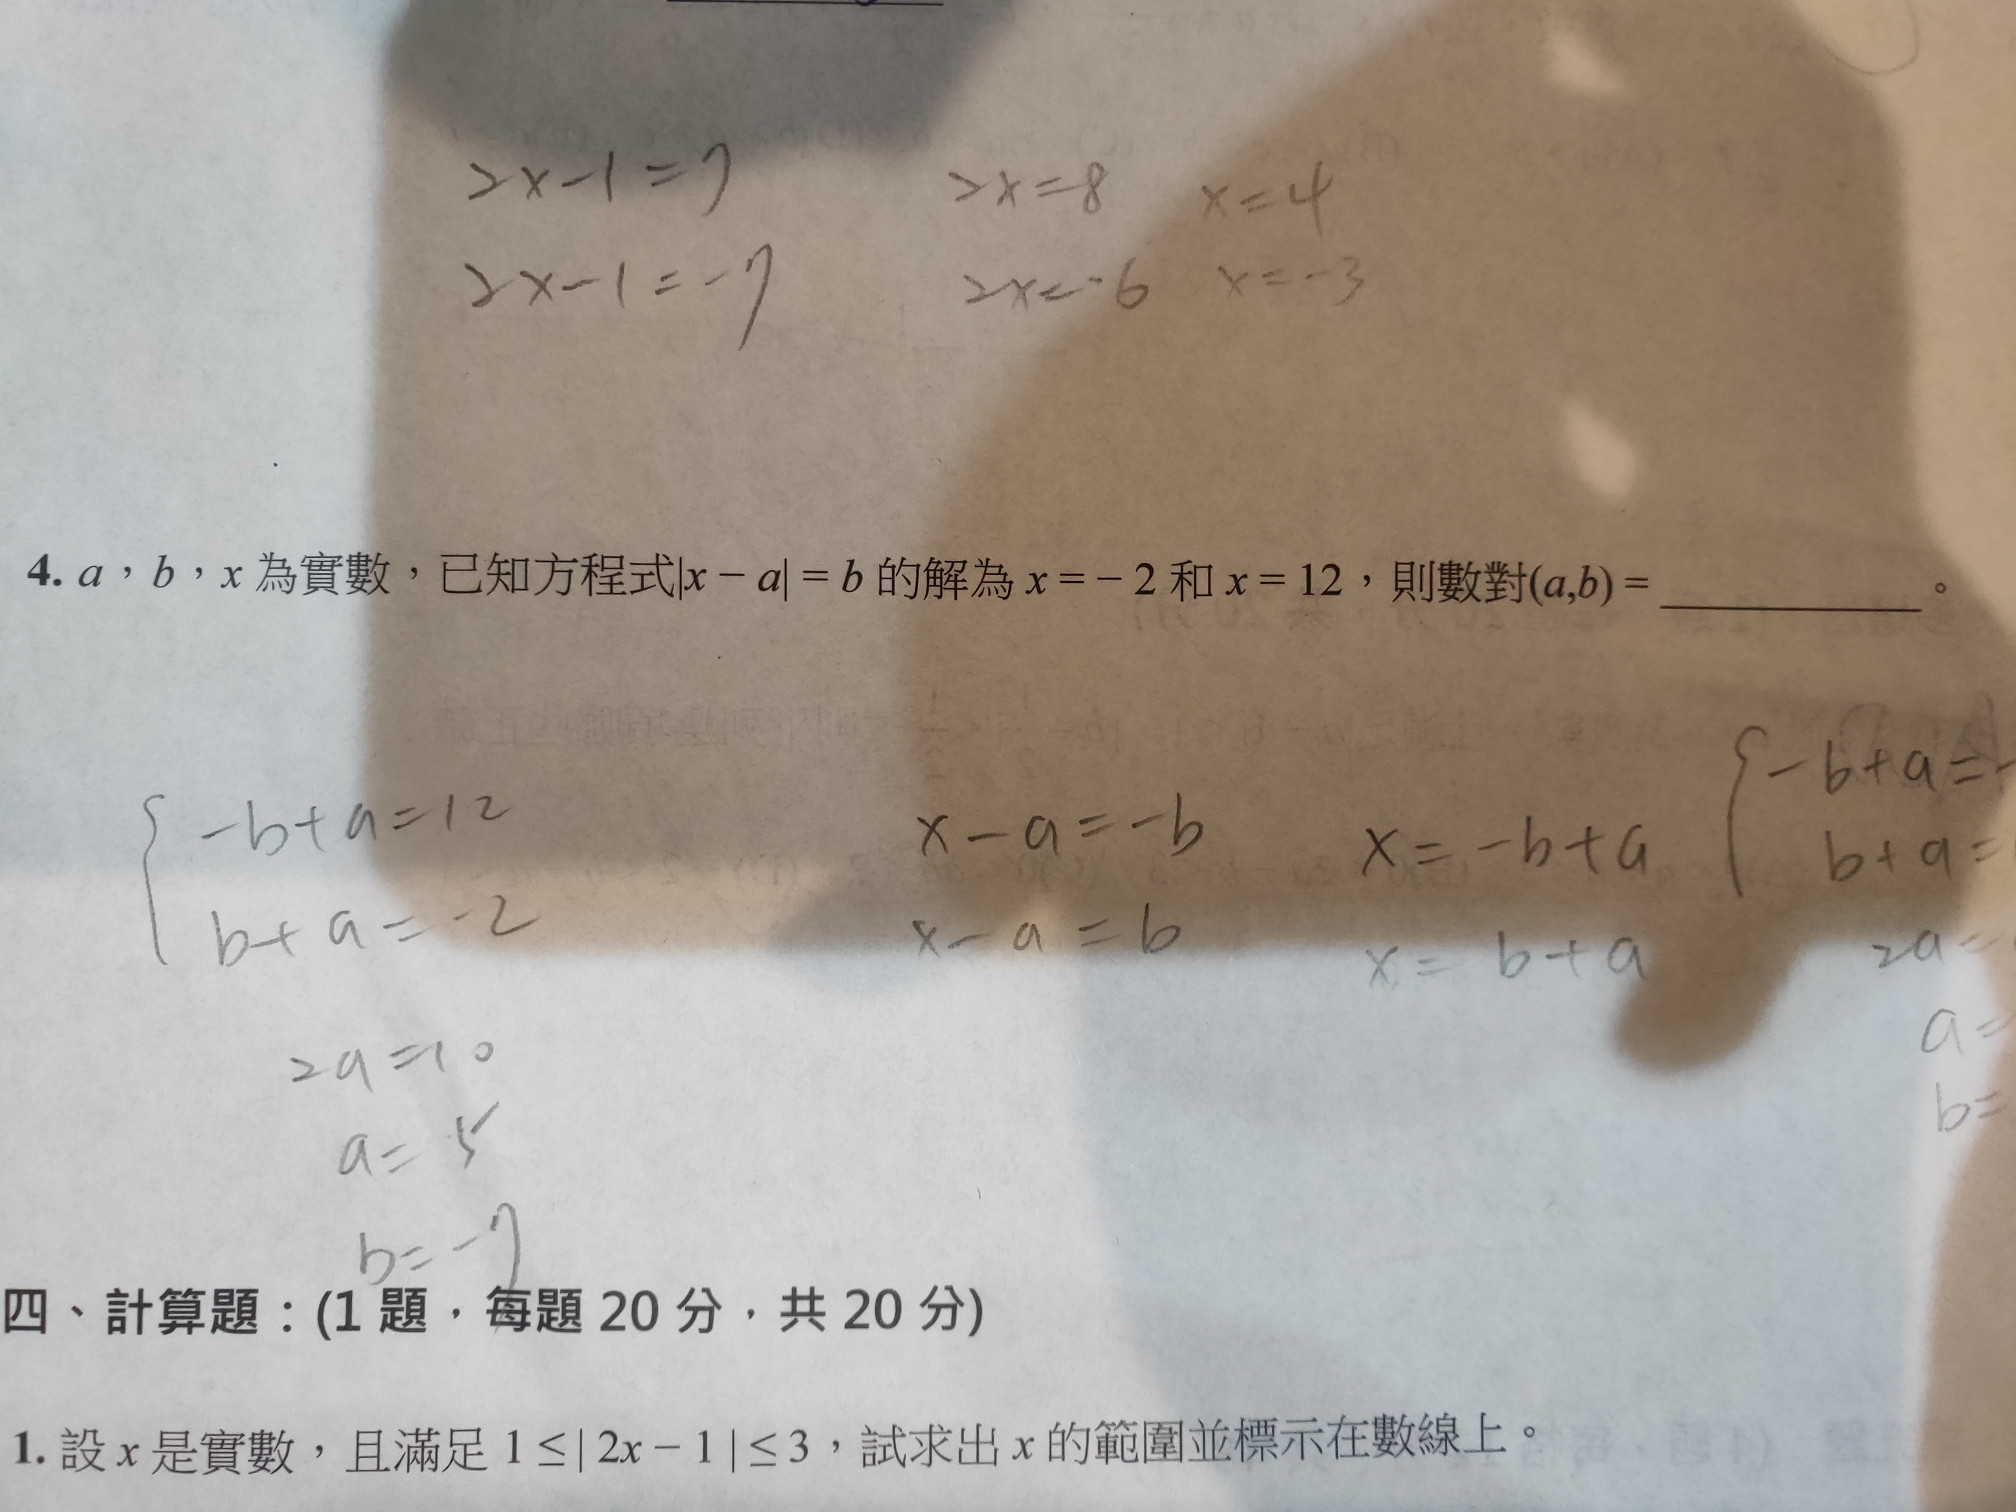 2x-1=7 2x=8 x=4
2x-1=-7 2x=-6 x=-3
4. a，b，x 為實數，已知方程式|x − a| = b 的解為 x = − 2 和 x = 12，則數對(a,b) = ____________。
-b+a=12
b+a=-2
2a=10
a=5
b=-7
x-a=-b x=-b+a
x-a=b x=b+a
-b+a=-
b+a=
2a=
a=
b=
四、計算題：(1 題，每題 20 分，共 20 分)
1. 設 x 是實數，且滿足 1 ≤ | 2x − 1 | ≤ 3，試求出 x 的範圍並標示在數線上。